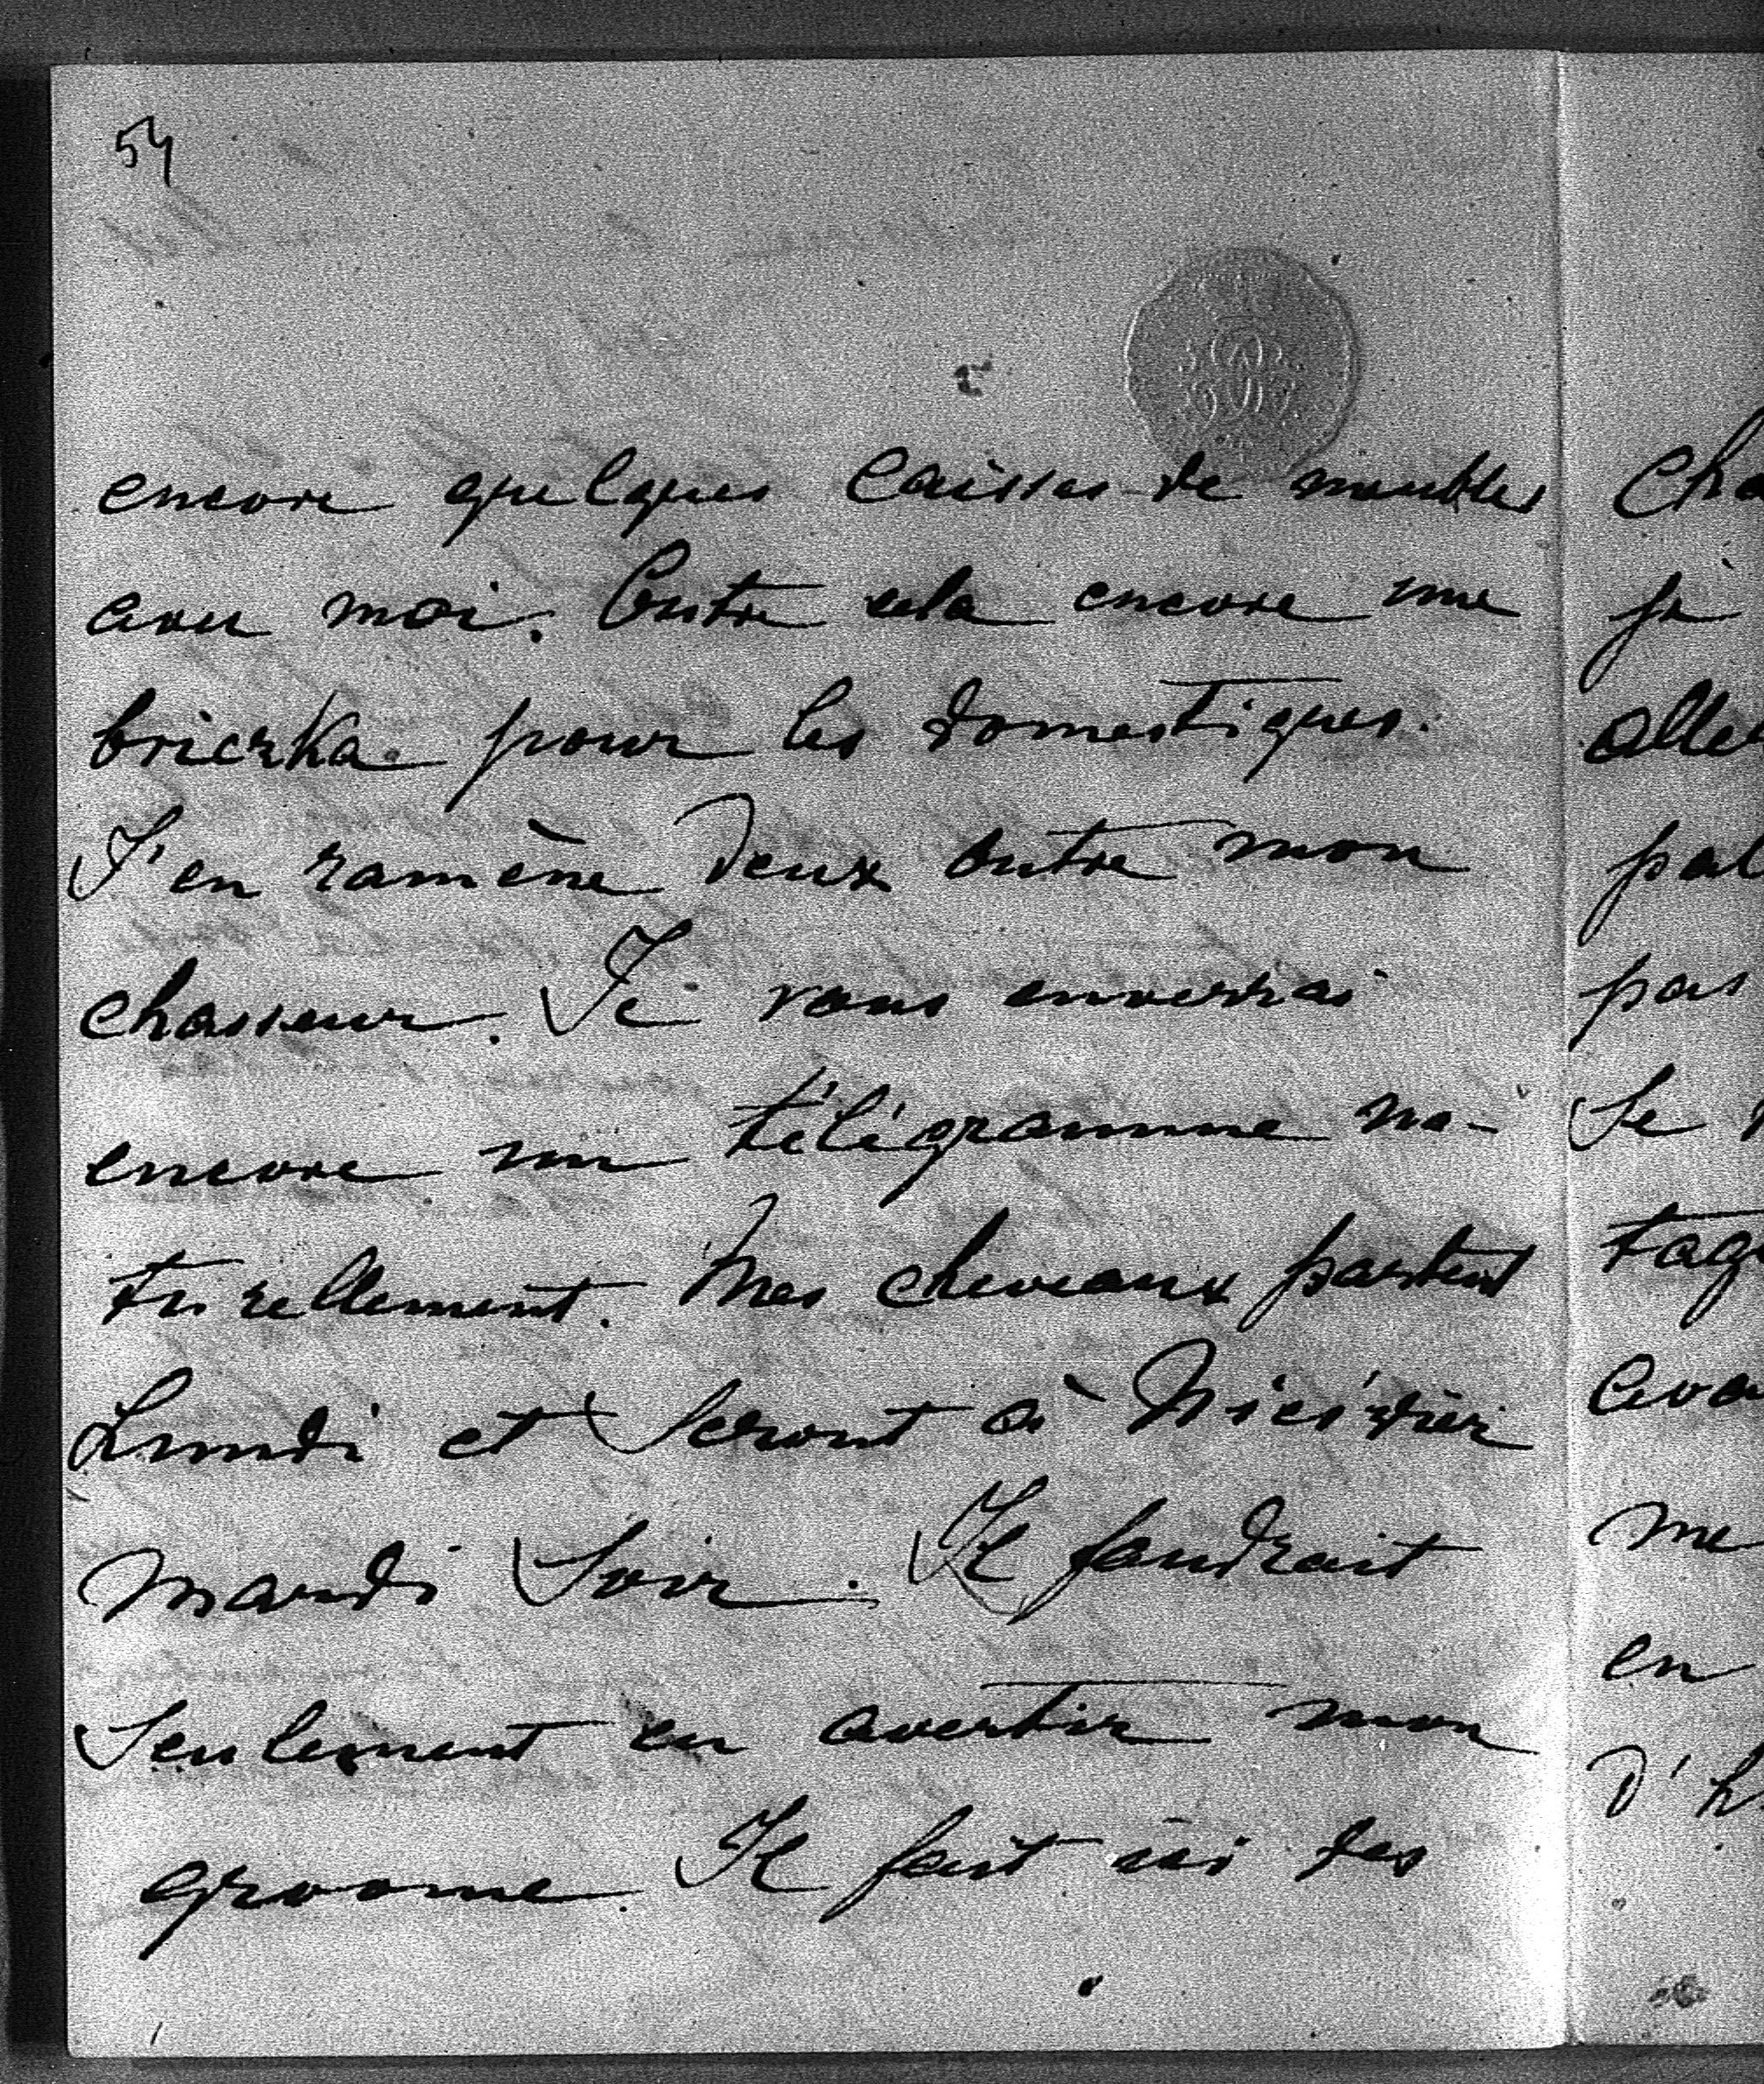 54
encore quelques caisses de meubles
avec moi. Outre cela encore une
briczka pour les domestiques.
J'en ramène deux outre mon
chasseur. Je vous enverrai
encore un télégramme na-
turellement. Mes cheveaux partent
Lundi et seront à
Mardi soir. Il faudrait
seulement en avertir mon
groome. Il fait ici des
je
pas
se
me
en